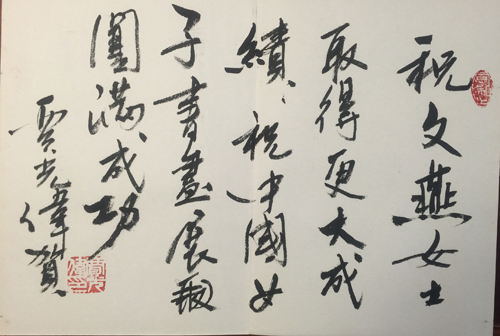 祝文燕女士
取得更大成
績、祝中國女
子書畫展覽
圓滿成功
賈光偉賀